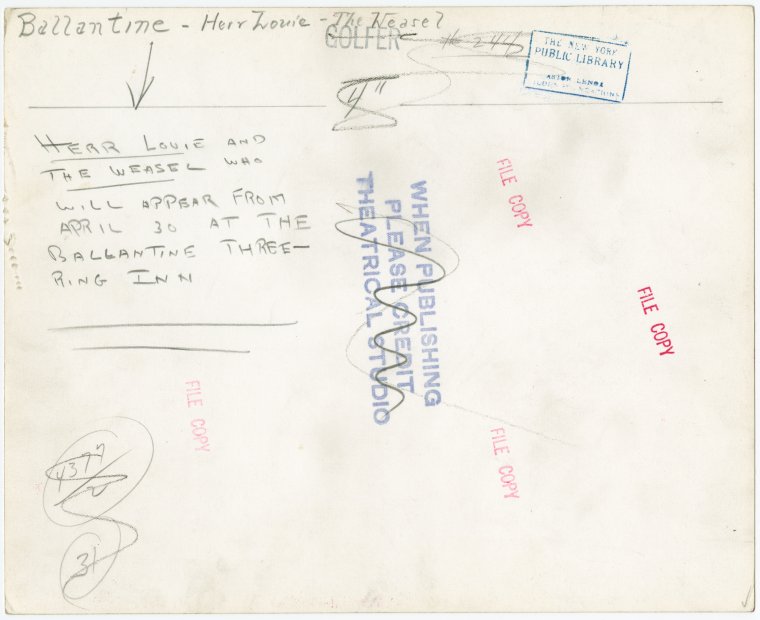 Ballantine - Herr Louie - The Weasel
GOLFER
THE NEW YORK
PUBLIC LIBRARY
ASTOR LENOX
TILDEN FOUNDATIONS
4"
HERR LOUIE AND
THE WEASEL WHO
WILL APPEAR FROM
APRIL 30 AT THE
BALLANTINE THREE-
RING INN
WHEN PUBLISHING
PLEASE CREDIT
THEATRICAL STUDIO
FILE COPY
FILE COPY
FILE COPY
FILE COPY
31